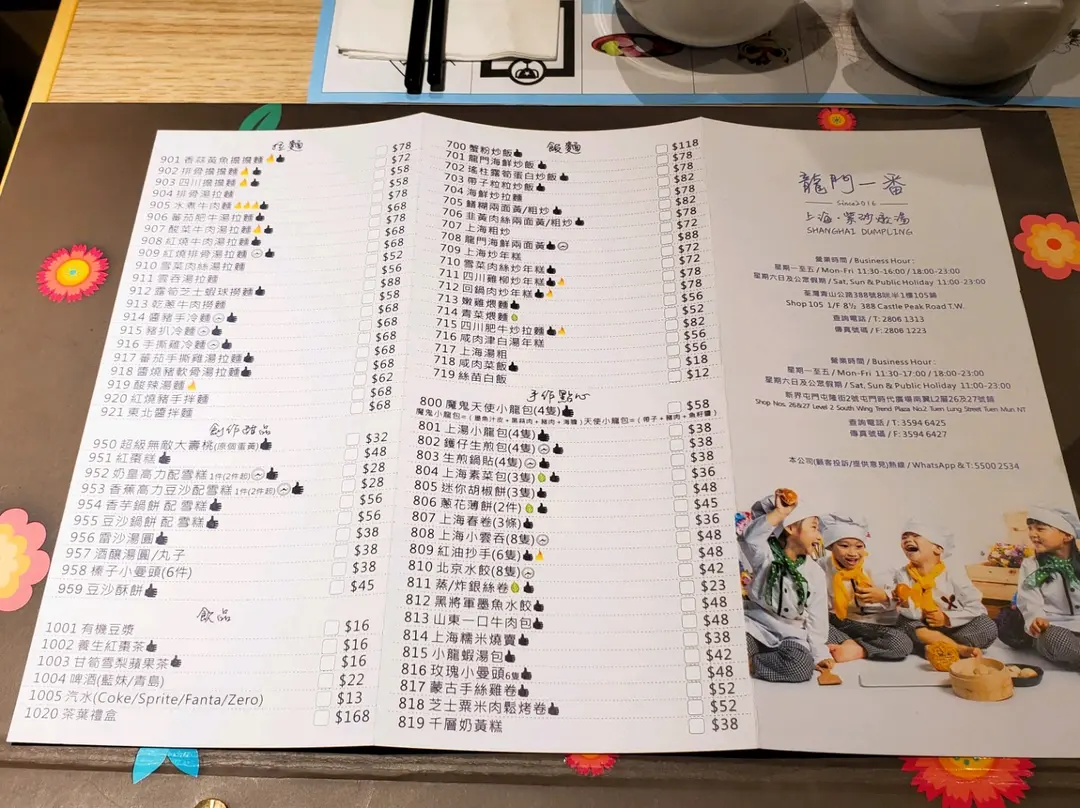 拉麵
901 香蒜黃魚擔擔麵 $78
902 排骨擔擔麵 $72
903 四川擔擔麵 $58
904 排骨湯拉麵 $58
905 水煮牛肉麵 $78
906 蕃茄肥牛湯拉麵 $68
907 酸菜牛肉湯拉麵 $78
908 紅燒牛肉湯拉麵 $68
909 紅燒排骨湯拉麵 $68
910 雪菜肉絲湯拉麵 $52
911 雲吞湯拉麵 $56
912 露筍芝士蝦球撈麵 $88
913 乾蔥牛肉撈麵 $58
914 醬豬手冷麵 $68
915 豬扒冷麵 $68
916 手撕雞冷麵 $68
917 蕃茄手撕雞湯拉麵 $68
918 醬燒豬軟骨湯拉麵 $68
919 酸辣湯麵 $62
920 紅燒豬手拌麵 $68
921 東北醬拌麵 $68
創作甜品
950 超級無敵大壽桃(原個蛋黃) $32
951 紅棗糕 $48
952 奶皇高力配雪糕 1件(2件起) $28
953 香蕉高力豆沙配雪糕 1件(2件起) $28
954 香芋鍋餅 配 雪糕 $56
955 豆沙鍋餅 配 雪糕 $56
956 雷沙湯圓 $38
957 酒釀湯圓/丸子 $38
958 榛子小曼頭(6件) $38
959 豆沙酥餅 $45
飲品
1001 有機豆漿 $16
1002 養生紅棗茶 $16
1003 甘筍雪梨蘋果茶 $16
1004 啤酒(藍妹/青島) $22
1005 汽水(Coke/Sprite/Fanta/Zero) $13
1020 茶葉禮盒 $168
飯麵
700 蟹粉炒飯 $118
701 龍門海鮮炒飯 $78
702 瑤柱露筍蛋白炒飯 $78
703 帶子粒粒炒飯 $82
704 海鮮炒拉麵 $78
705 鱔糊兩面黃/粗炒 $82
706 韭黃肉絲兩面黃/粗炒 $78
707 上海粗炒 $72
708 龍門海鮮兩面黃 $88
709 上海炒年糕 $72
710 雪菜肉絲炒年糕 $72
711 四川雞柳炒年糕 $78
712 回鍋肉炒年糕 $72
713 嫩雞煨麵 $56
714 青菜煨麵 $52
715 四川肥牛炒拉麵 $82
716 咸肉津白湯年糕 $56
717 上海湯粗 $56
718 咸肉菜飯 $18
719 絲苗白飯 $12
手作點心
800 魔鬼天使小龍包(4隻) $58
801 上湯小龍包(4隻) $38
802 鑊仔生煎包(4隻) $38
803 生煎鍋貼(4隻) $38
804 上海素菜包(3隻) $36
805 迷你胡椒餅(3隻) $48
806 蔥花薄餅(2件) $45
807 上海春卷(3條) $36
808 上海小雲吞(8隻) $48
809 紅油抄手(6隻) $48
810 北京水餃(8隻) $42
811 蒸/炸銀絲卷 $23
812 黑將軍墨魚水餃 $48
813 山東一口牛肉包 $48
814 上海糯米燒賣 $38
815 小龍蝦湯包 $42
816 玫瑰小曼頭6隻 $48
817 蒙古手絲雞卷 $52
818 芝士粟米肉鬆烤卷 $52
819 千層奶黃糕 $38
龍門一番
Since2016
上海·紫砂燉湯
SHANGHAI DUMPLING
營業時間 / Business Hour :
星期一至五 / Mon-Fri 11:30-16:00 / 18:00-23:00
星期六日及公眾假期 / Sat, Sun & Public Holiday 11:00-23:00
荃灣青山公路388號8咪半1樓105鋪
Shop 105 1/F 8½ 388 Castle Peak Road T.W.
查詢電話 / T: 2806 1313
傳真號碼 / F: 2806 1223
營業時間 / Business Hour :
星期一至五 / Mon-Fri 11:30-17:00 / 18:00-23:00
星期六日及公眾假期 / Sat, Sun & Public Holiday 11:00-23:00
新界屯門屯隆街2號屯門時代廣場南翼L2層26及27號鋪
Shop Nos. 26&27 Level 2 South Wing Trend Plaza No.2 Tuen Lung Street Tuen Mun NT
查詢電話 / T: 3594 6425
傳真號碼 / F: 3594 6427
本公司(顧客投訴/提供意見)熱線 / WhatsApp & T: 5500 2534